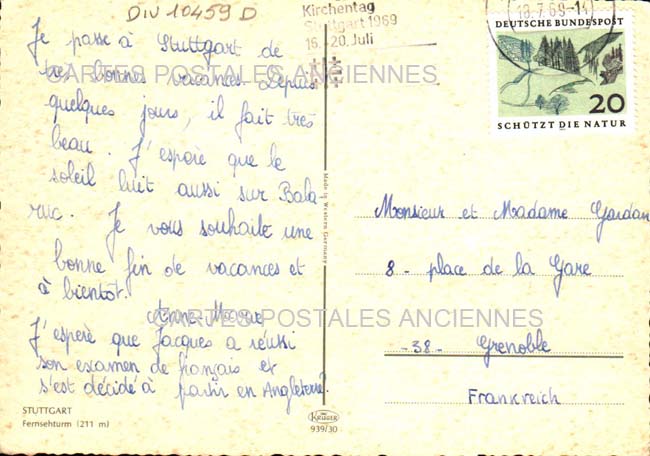 DIV 10459 D
Kirchentag
Stuttgart 1969
16.-20. Juli
18.7.69-11
DEUTSCHE BUNDESPOST
20
SCHÜTZT DIE NATUR
Je passe à Stuttgart de
très bonnes vacances. Depuis
quelques jours, il fait très
beau. J'espère que le
soleil luit aussi sur Bala-
ruc. Je vous souhaite une
bonne fin de vacances et
à bientôt.
Anne-Marie
J'espère que Jacques a réussi
son examen de français et
s'est décidé à partir en Angleterre!
CARTES POSTALES ANCIENNES
CARTES POSTALES ANCIENNES
Made in Western Germany
Monsieur et Madame
8 - place de la Gare
-38- Grenoble
Frankreich
STUTTGART
Fernsehturm (211 m)
KRÜGER
939/30